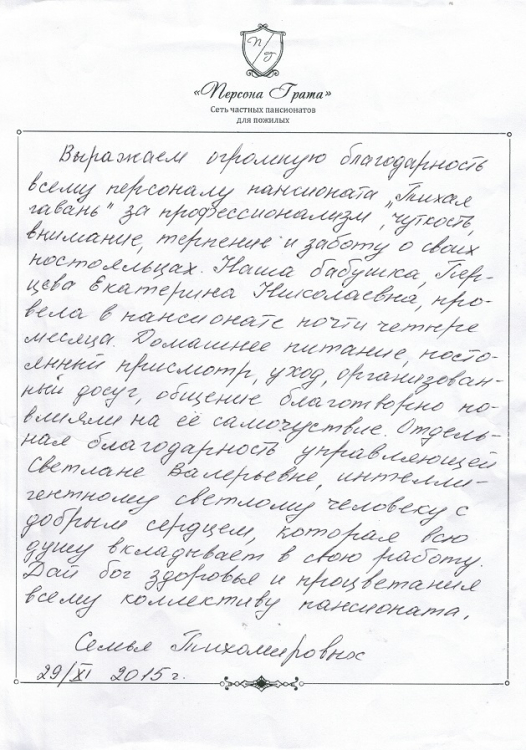 П/Г
«Персона Грата»
Сеть частных пансионатов
для пожилых
Выражаем огромную благодарность
всему персоналу пансионата „Тихая
гавань" за профессионализм, чуткость,
внимание, терпение и заботу о своих
постояльцах. Наша бабушка, Пер-
цева Екатерина Николаевна, про-
вела в пансионате почти четыре
месяца. Домашнее питание, посто-
янный присмотр, уход, организован-
ный досуг, общение благотворно по-
влияли на её самочуствие. Отдель-
ная благодарность управляющей
Светлане Валерьевне, интелли-
гентному светлому человеку с
добрым сердцем, которая всю
душу вкладывает в свою работу.
Дай бог здоровья и процветания
всему коллективу пансионата.
Семья Тихомировых
29/XI 2015 г.